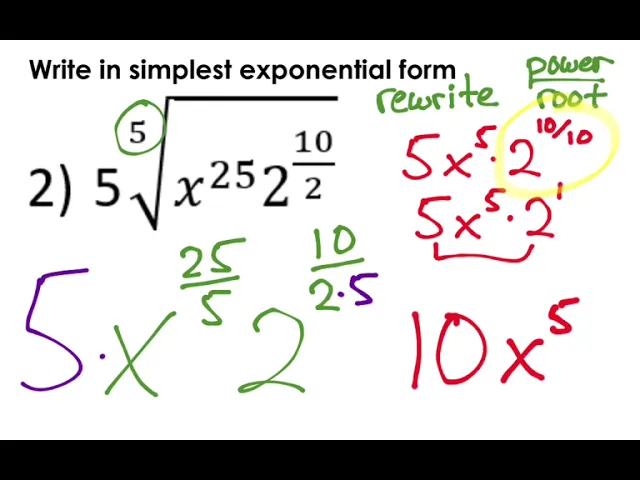 Write in simplest exponential form
rewrite power/root
2) 5 ⁵√(x²⁵2^(10/2))
5x⁵·2^(10/10)
5x⁵·2¹
5·x^(25/5) 2^(10/(2·5))
10x⁵